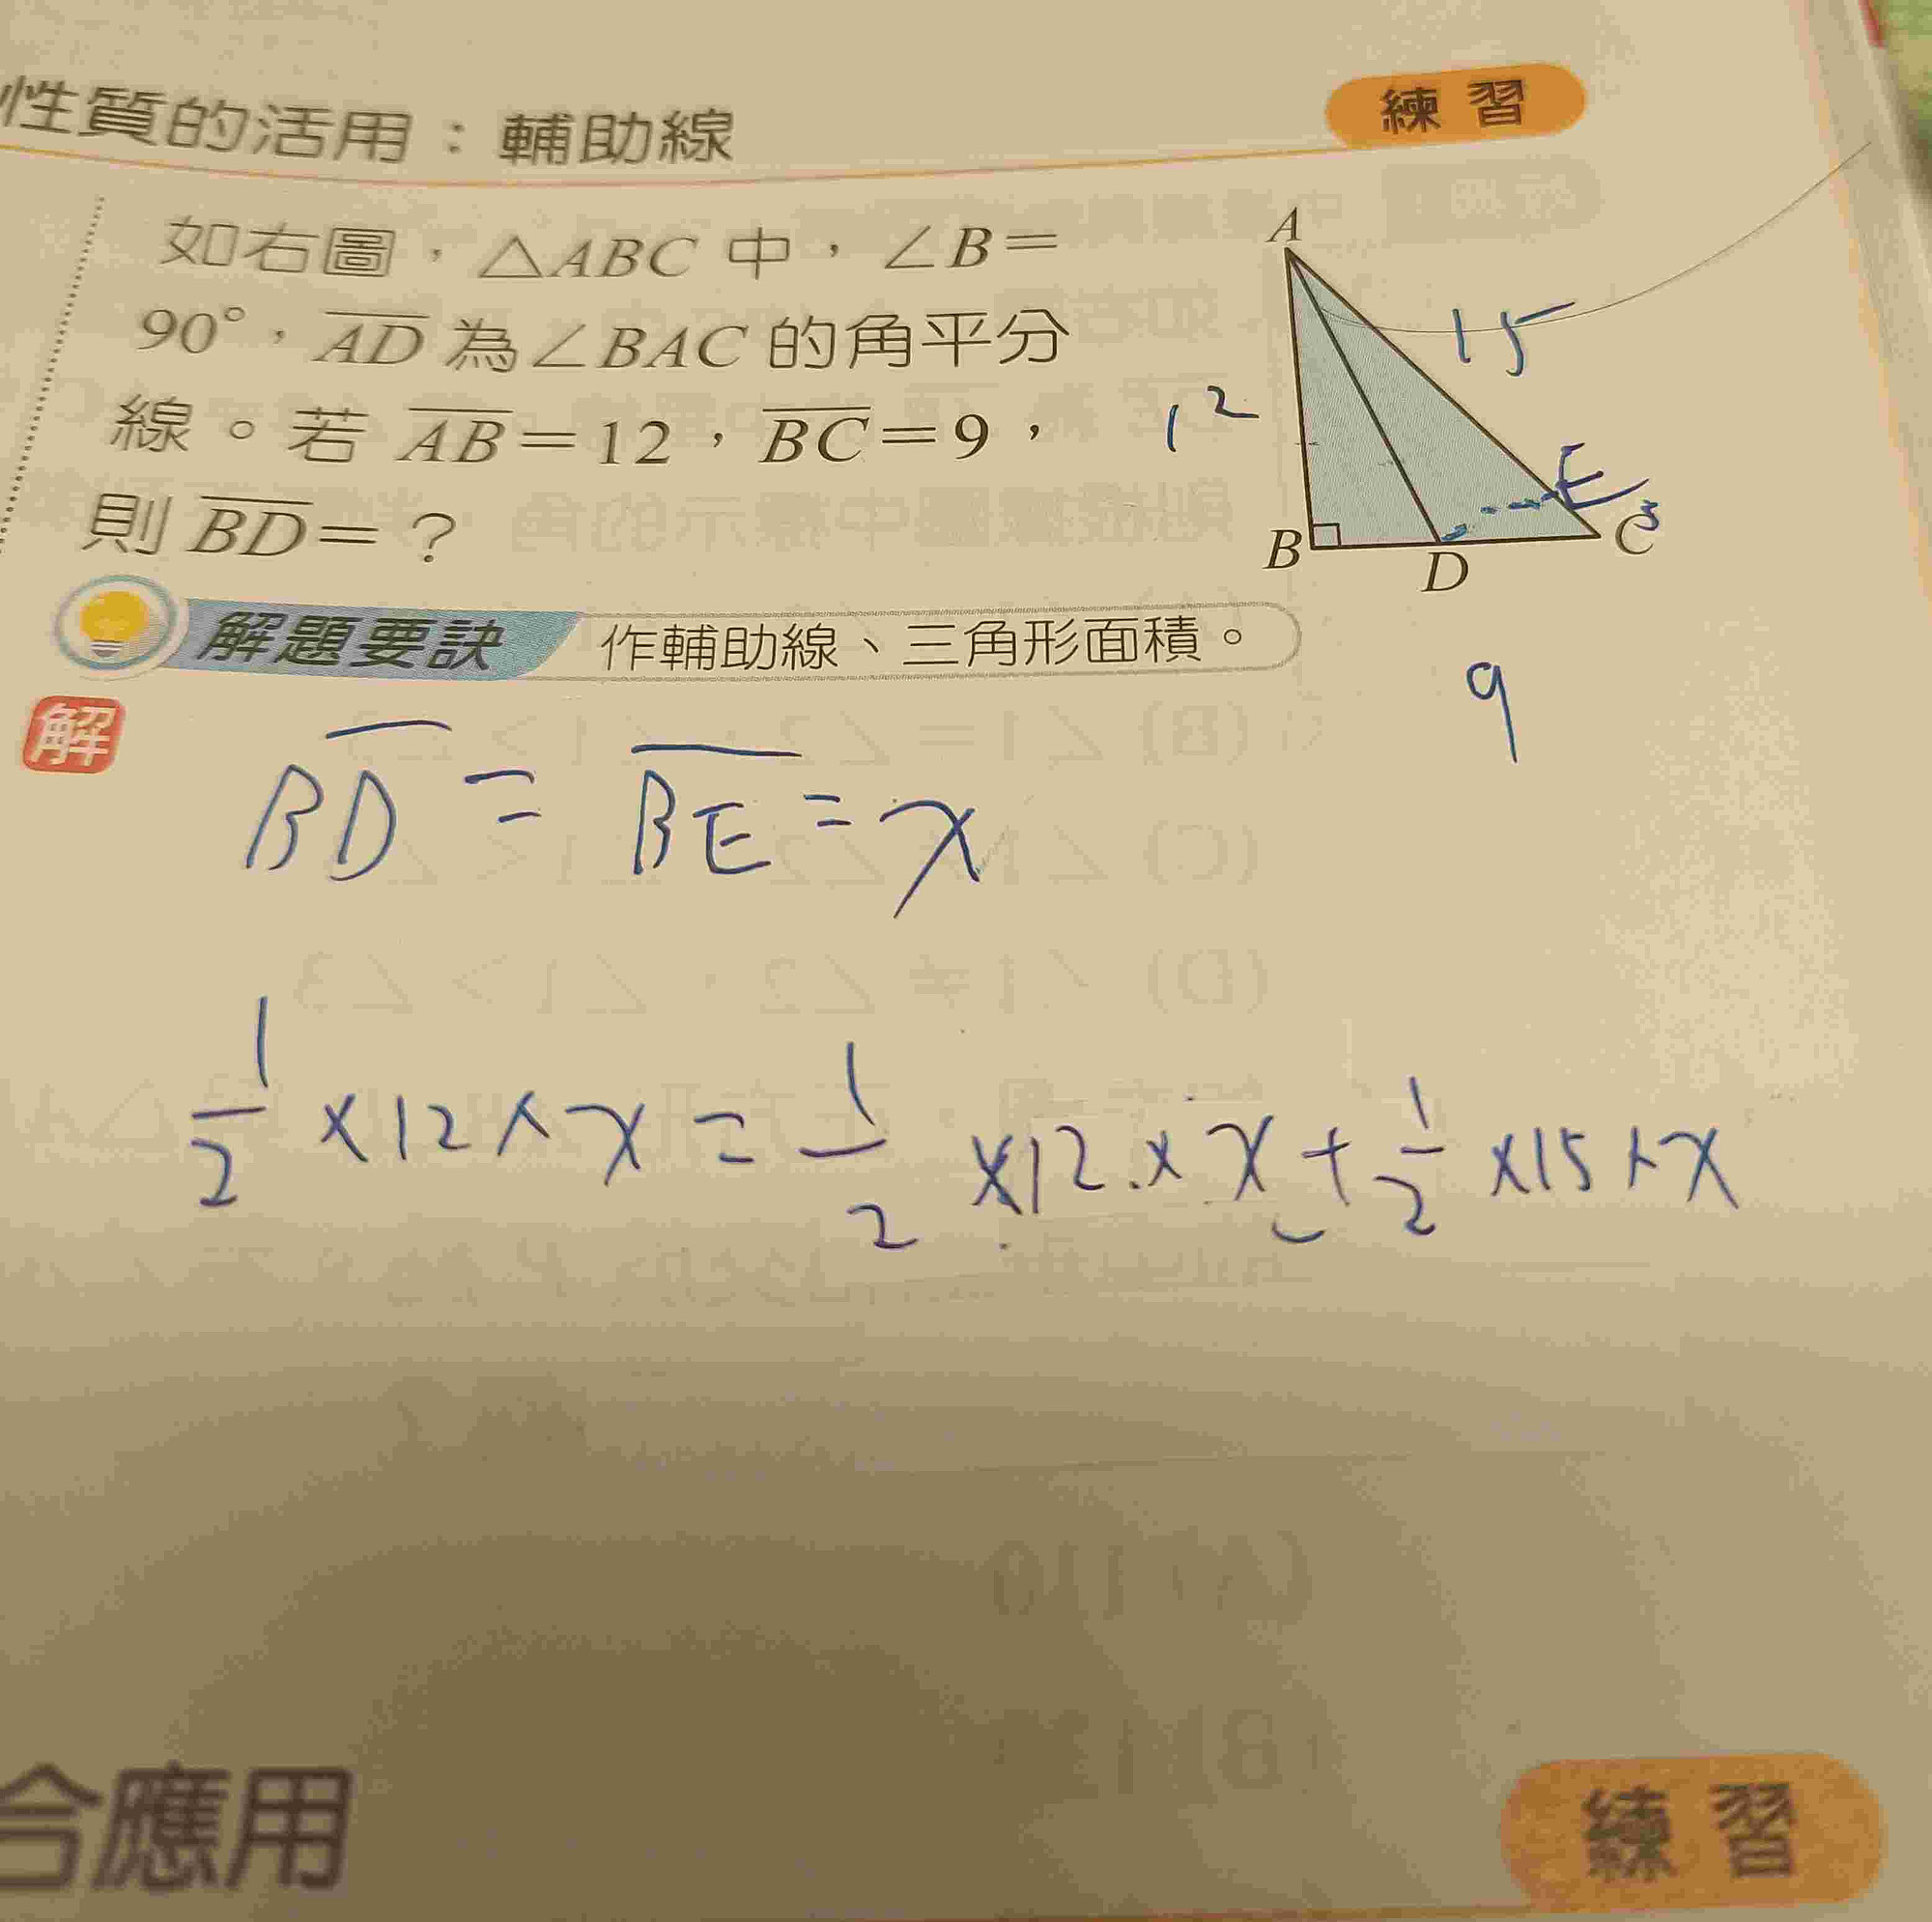 性質的活用：輔助線
練習
如右圖，△ABC 中，∠B=
90°，AD 為∠BAC 的角平分
線。若 AB=12，BC=9，
則 BD=？
A
15
12
E
B
D
C
解題要訣 作輔助線、三角形面積。
9
解
BD = BE = x
1/2 ×12×x = 1/2 ×12×x + 1/2 ×15×x
合應用
練習